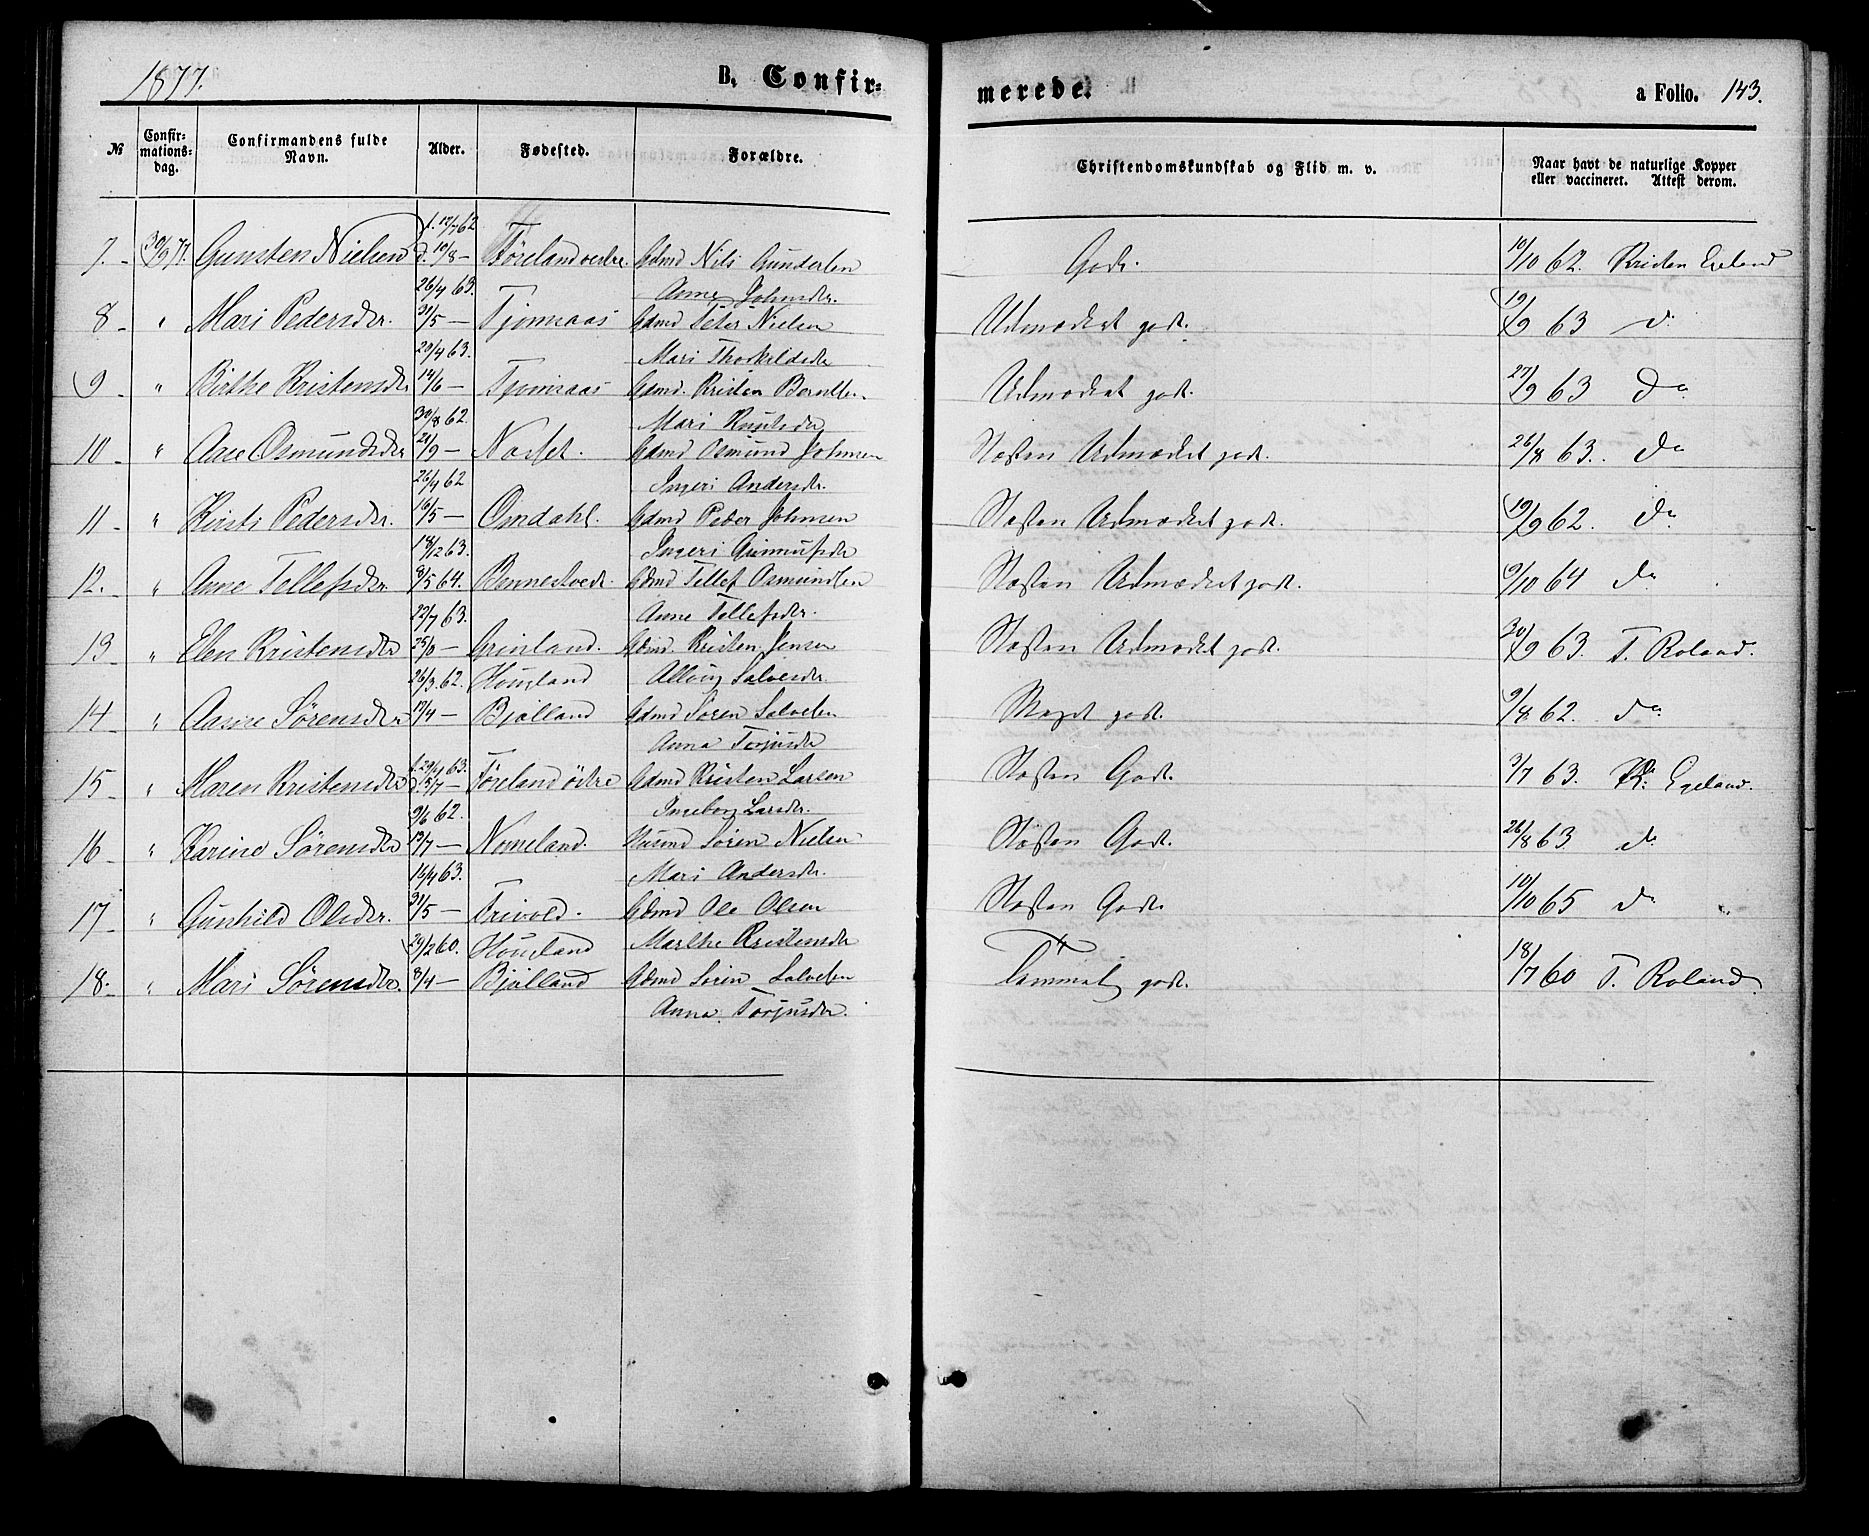 1877.
B. Confir-
merede.
a Folio. 143.
№
Confir-
mations-
dag.
Confirmandens fulde
Navn.
Alder.
Fødested.
Forældre.
Christendomskundskab og Flid m. v.
Naar havt de naturlige Kopper
eller vaccineret. Attest derom.
f. 17/7 62
7. 30/9 77. Gunsten Nielsen d. 10/8 — Föreland vestre. Gdmd Nils Gundersen Godt. 10/10 62. Kristen Egeland
26/4 63. Anne Johnsdr.
8 " Mari Pedersdr. 31/5 — Tjomaas Gdmd Peter Nielsen Udmærket godt. 19/9 63 do
20/4 63. Mari Thorkildsdr
9 " Birthe Kristensdr 14/6 — Tjomaas Gdmd. Kristen Berntsen Udmærket godt. 27/9 63 do
30/8 62. Mari Knutsdr
10 " Aase Osmundsdr 21/9 — Napset. Gdmd Osmund Johnsen Næsten Udmærket godt. 26/8 63. do
26/4 62 Ingeri Andersdr.
11 " Kirsti Pedersdr. 16/5 — Omdahl. Gdmd Peder Johnsen Næsten Udmærket godt. 19/9 62. do
18/2 63. Ingeri Gunnufsdr
12. " Anne Tellefsdr 8/5 64. Bennestvedt. Gdmd Tellef Osmundsen Næsten Udmærket godt. 9/10 64 do
22/7 63. Anne Tellefsdr.
13 " Elen Kristensdr — Grinland. Gdmd. Kristen Jensen Næsten Udmærket godt. 30/9 63. T. Roland.
26/3. 62. Hougland Salvesdr.
14 " Aasine Sørensdr 17/4 — Bjålland Gdmd Sören Salvesen Meget godt. 9/8 62. do
f. 29/4 63. Anna Torjusdr
15 " Maren Kristensdr d. 5/7 — Föreland östre Gdmd Kristen Larsen Næsten Godt. 3/7 63. K. Egeland.
9/6 62. Ingeborg Larsdr.
16 " Karine Sørensdr 17/7 — Nomeland. Husmd Sören Nielsen Næsten Godt. 26/8 63 do
16/4 63. Mari Andersdr.
17 " Gunhild Olsdr. 31/5 — Trivold. Gdmd Ole Olsen Næsten Godt. 10/10 65 do
29/2 60. Hougland Marthe Kristensdr
18. " Mari Sørensdr. 8/4 — Bjålland Gdmd Sören Salvesen Tammelig godt. 18/7 60 T. Roland
Anna Torjusdr.